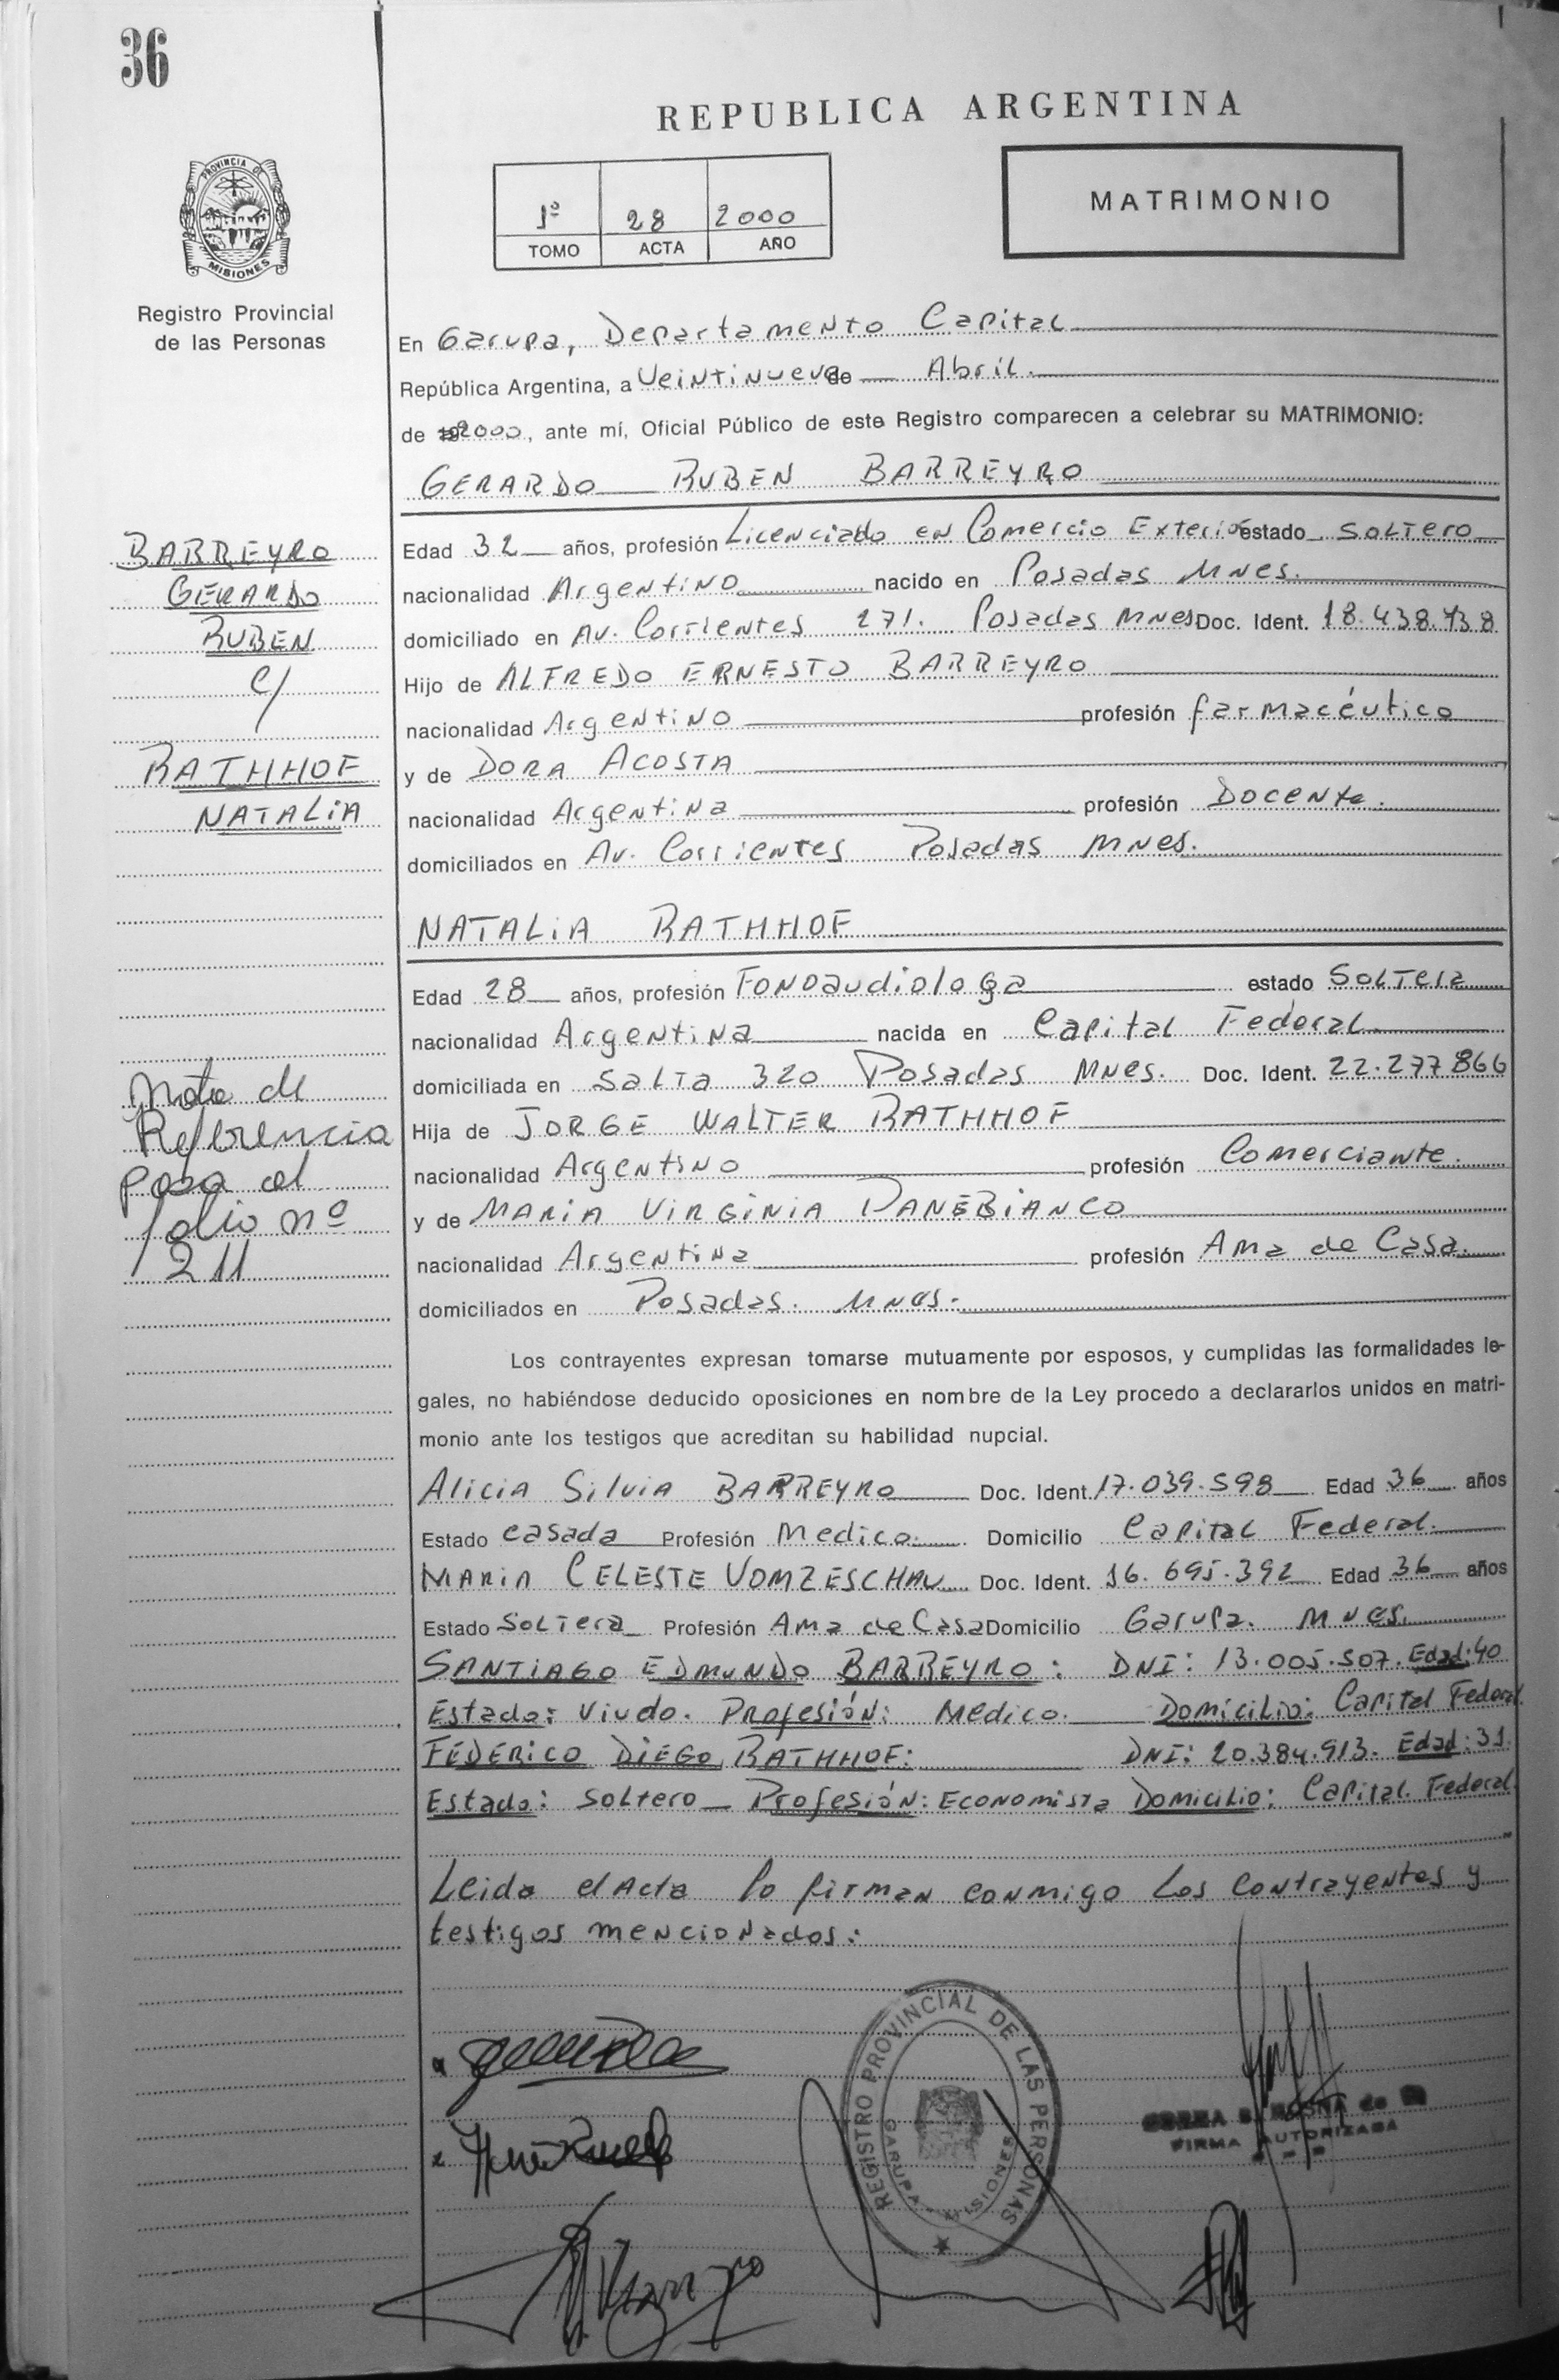 36
REPUBLICA ARGENTINA
PROVINCIA DE
MISIONES
Registro Provincial
de las Personas
1º 28 2000
TOMO ACTA AÑO
MATRIMONIO
En Garupa, Departamento Capital
República Argentina, a Veintinueve de Abril.
de 2000, ante mí, Oficial Público de este Registro comparecen a celebrar su MATRIMONIO:
GERARDO RUBEN BARREYRO
BARREYRO
GERARDO
RUBEN
C/
RATHHOF
NATALIA
Edad 32 años, profesión Licenciado en Comercio Exterior estado SOLTERO
nacionalidad Argentino nacido en Posadas MNes.
domiciliado en Av. Corrientes 271. Posadas MNes Doc. Ident. 18.438.738
Hijo de ALFREDO ERNESTO BARREYRO
nacionalidad Argentino profesión farmacéutico
y de DORA ACOSTA
nacionalidad Argentina profesión DOCENTE.
domiciliados en Av. Corrientes Posadas MNes.
NATALIA RATHHOF
Edad 28 años, profesión FONOaudiologa estado SOLTERA
nacionalidad Argentina nacida en Capital Federal
domiciliada en SALTA 320 Posadas MNes. Doc. Ident. 22.277866
Hija de JORGE WALTER RATHHOF
nacionalidad Argentino profesión Comerciante.
y de MARIA VIRGINIA PANEBIANCO
nacionalidad Argentina profesión Ama de Casa.
domiciliados en Posadas. MNes.
Nota de
Referencia
pasa al
folio nº
211
Los contrayentes expresan tomarse mutuamente por esposos, y cumplidas las formalidades le-
gales, no habiéndose deducido oposiciones en nombre de la Ley procedo a declararlos unidos en matri-
monio ante los testigos que acreditan su habilidad nupcial.
Alicia Silvia BARREYRO Doc. Ident. 17.039.598 Edad 36 años
Estado casada Profesión Medica. Domicilio Capital Federal.
MARIA CELESTE VOMZESCHAU Doc. Ident. 16.695.392 Edad 36 años
Estado SOLTERA Profesión Ama de Casa Domicilio Garupa. MNes.
SANTIAGO EDMUNDO BARREYRO: DNI: 13.005.507. Edad: 40
Estado: Viudo. Profesión: Medico. Domicilio: Capital Federal
FEDERICO DIEGO RATHHOF: DNI: 20.384.913. Edad: 31
Estado: Soltero Profesión: Economista Domicilio: Capital. Federal.
Leida el Acta lo firman conmigo los contrayentes y
testigos mencionados:
REGISTRO PROVINCIAL DE LAS PERSONAS
GARUPA - MISIONES
FIRMA AUTORIZADA